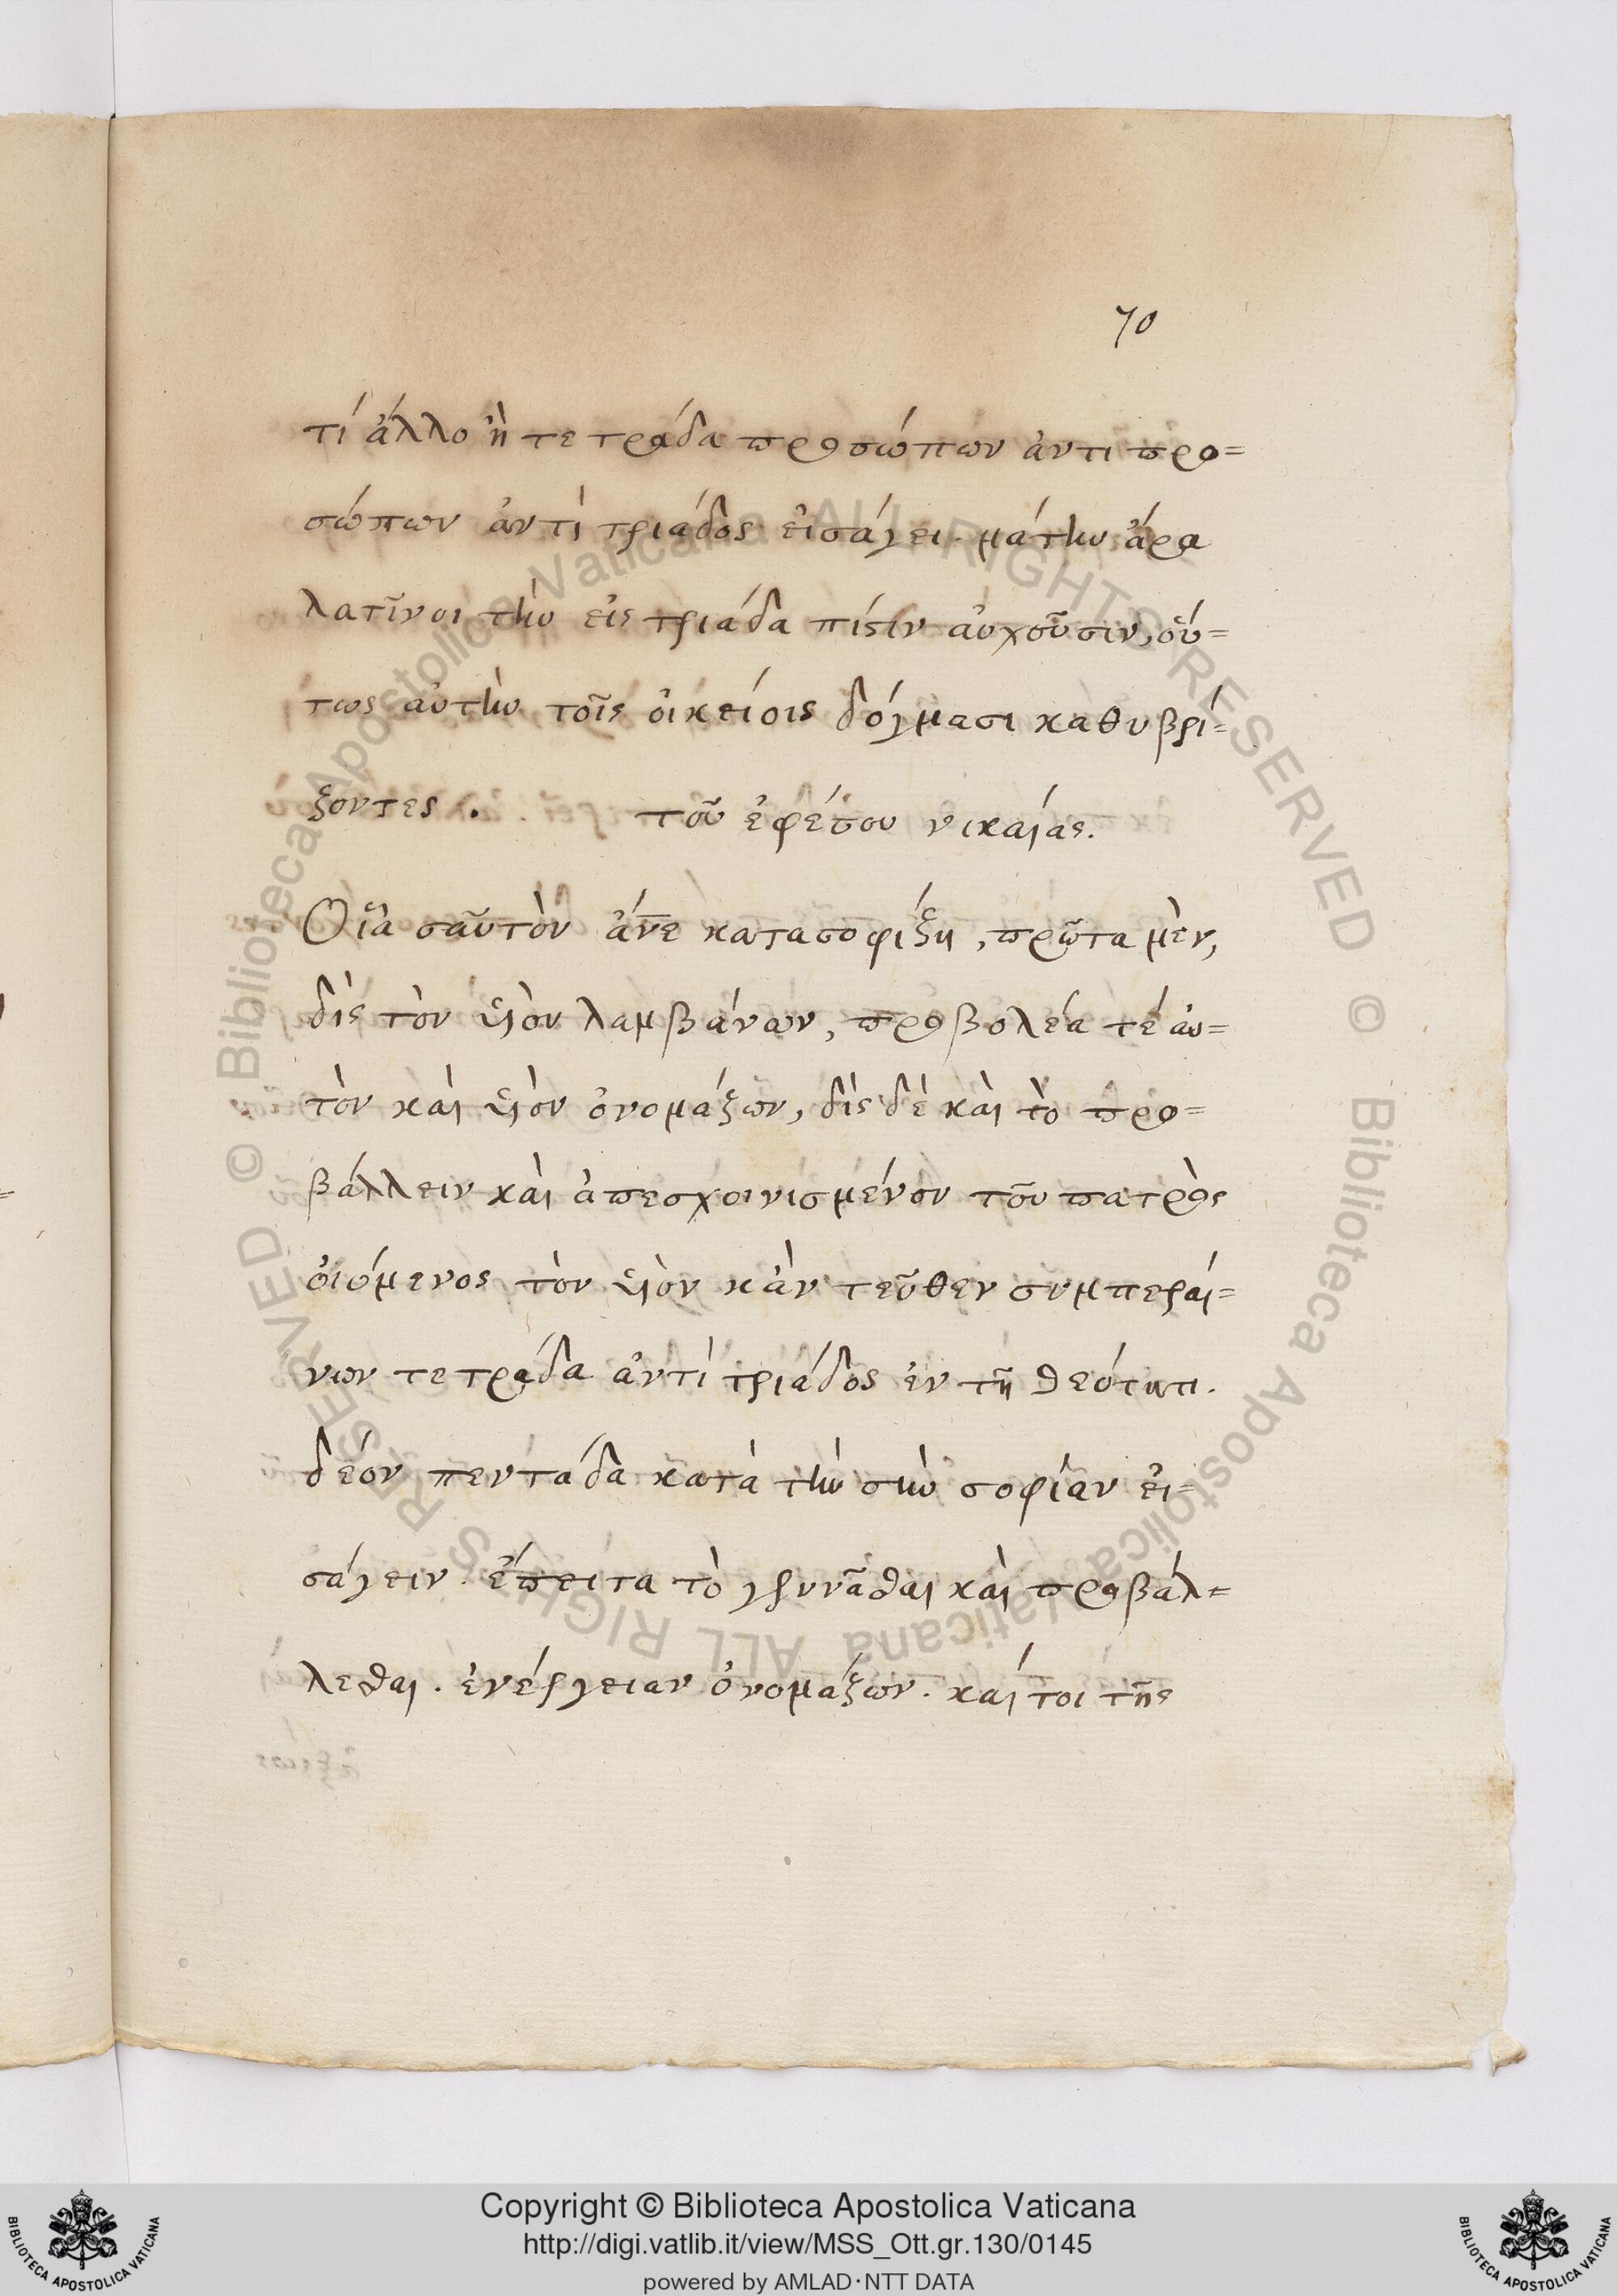 70
τί ἄλλο ἢ τετράδα προσώπων ἀντι προ=
σώπων ἀντὶ τριάδος εἰσάγει. μάτην ἄρα
λατῖνοι τὴν εἰς τριάδα πίστιν αὐχοῦσιν, οὕ=
τως αὐτὴν τοῖς οἰκείοις δόγμασι καθυβρί=
ζοντες. τοῦ ἐφέσου νικαίας.
Οἷα σαὐτὸν ἄνε κατασοφίζη, πρῶτα μὲν,
δὶς τὸν υἱὸν λαμβάνων, προβολέα τέ αυ=
τὸν καὶ υἱὸν ὀνομάζων, δὶς δὲ καὶ τὸ προ=
βάλλειν καὶ ἀπεσχοινισμένον τοῦ πατρὸς
οἰόμενος τὸν υἱὸν κἀν τεῦθεν συμπεραί=
νων τετράδα ἀντὶ τριάδος ἐν τῆ θεότητι.
δέον πεντάδα κατὰ τὴν σὴν σοφίαν εἰ=
σάγειν. ἔπειτα τὸ γεννᾶσθαι καὶ προβάλ=
λεσθαι. ἐνέργειαν ὀνομάζων. καί τοι τῆς
Copyright © Biblioteca Apostolica Vaticana
http://digi.vatlib.it/view/MSS_Ott.gr.130/0145
powered by AMLAD·NTT DATA
BIBLIOTECA APOSTOLICA VATICANA
BIBLIOTECA APOSTOLICA VATICANA
© Biblioteca Apostolica Vaticana ALL RIGHTS RESERVED
© Biblioteca Apostolica Vaticana ALL RIGHTS RESERVED